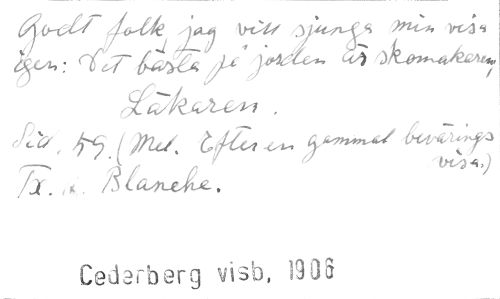 Godt folk jag vill sjunga min visa
igen: Det bästa på jorden är skomakaren,
Läkaren.
Sid. 59. (Mel. Efter en gammal bevärings
visa.)
Tx. Blanche.
Cederberg visb. 1906